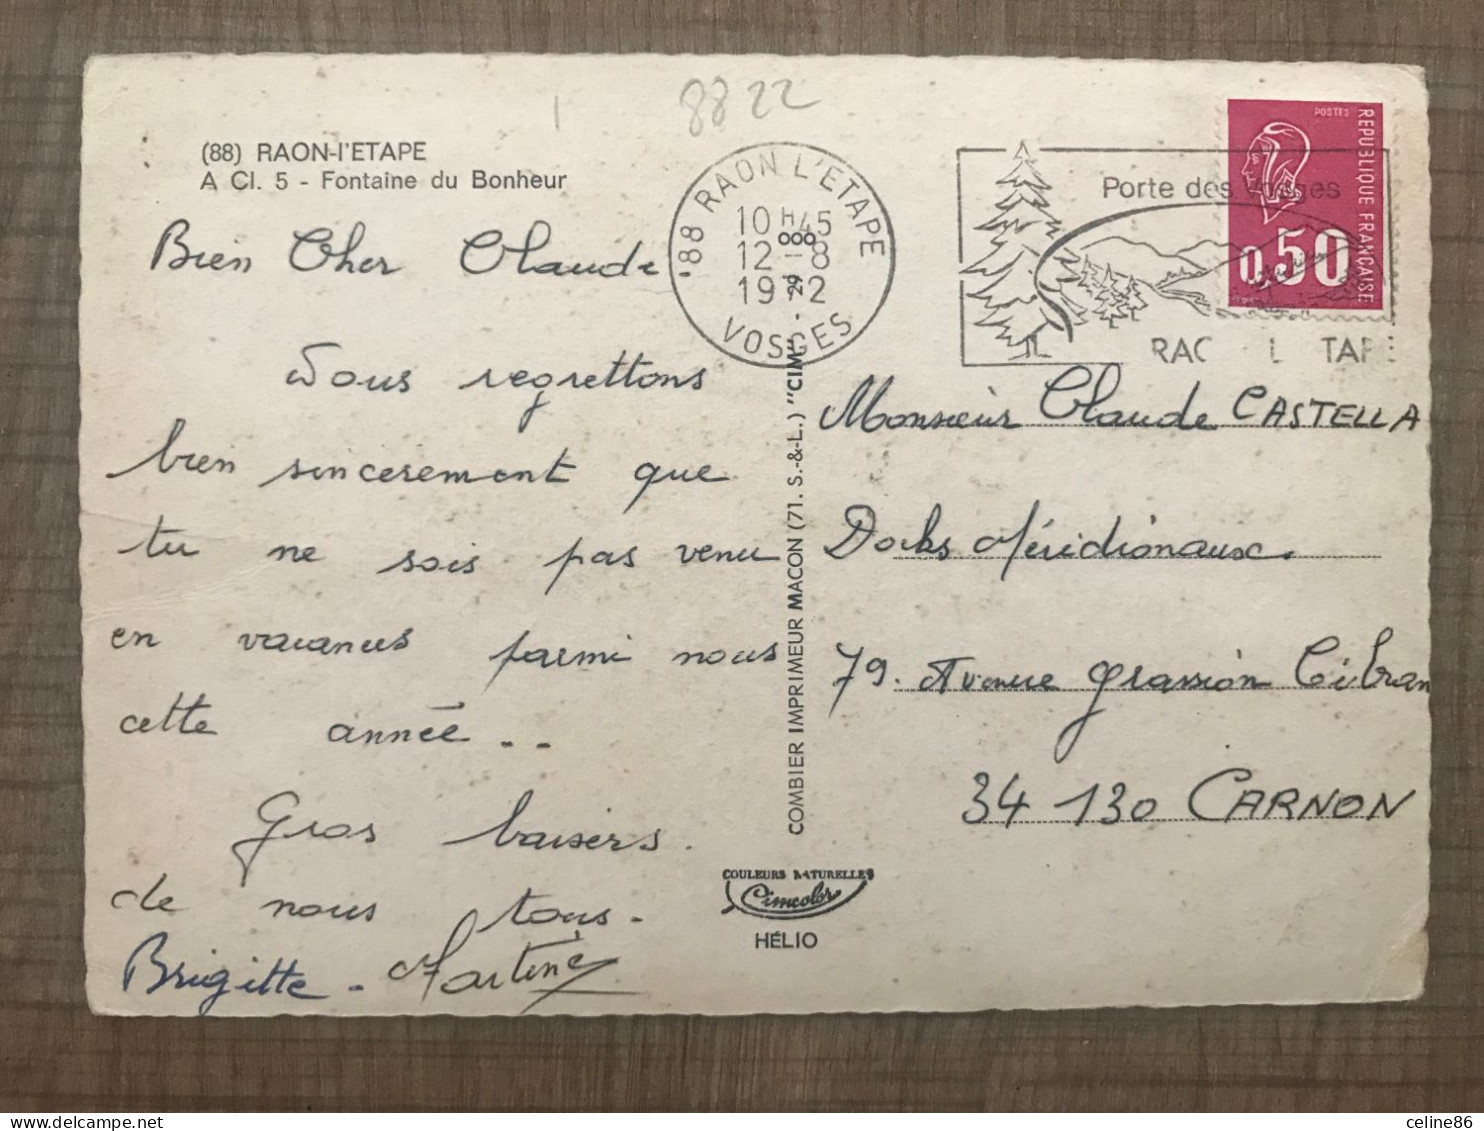 8822
(88) RAON-l'ETAPE
A Cl. 5 - Fontaine du Bonheur
Bien Cher Claude
Nous regrettons
bien sincerement que
tu ne sois pas venu
en vacances parmi nous
cette année..
Gros baisers.
de nous tous.
Brigitte - Martine
88 RAON L'ETAPE
10H45
12-8
1972
VOSGES
Porte des Vosges
RAC L TAPE
POSTES
REPUBLIQUE FRANÇAISE
0,50
COMBIER IMPRIMEUR MACON (71. S.-&-L.) "CIM"
COULEURS NATURELLES
Cimcolor
HÉLIO
Monsieur Claude CASTELLA
Docks Méridionaux.
79. Avenue Grassion Cibran
34 130 CARNON
celine86